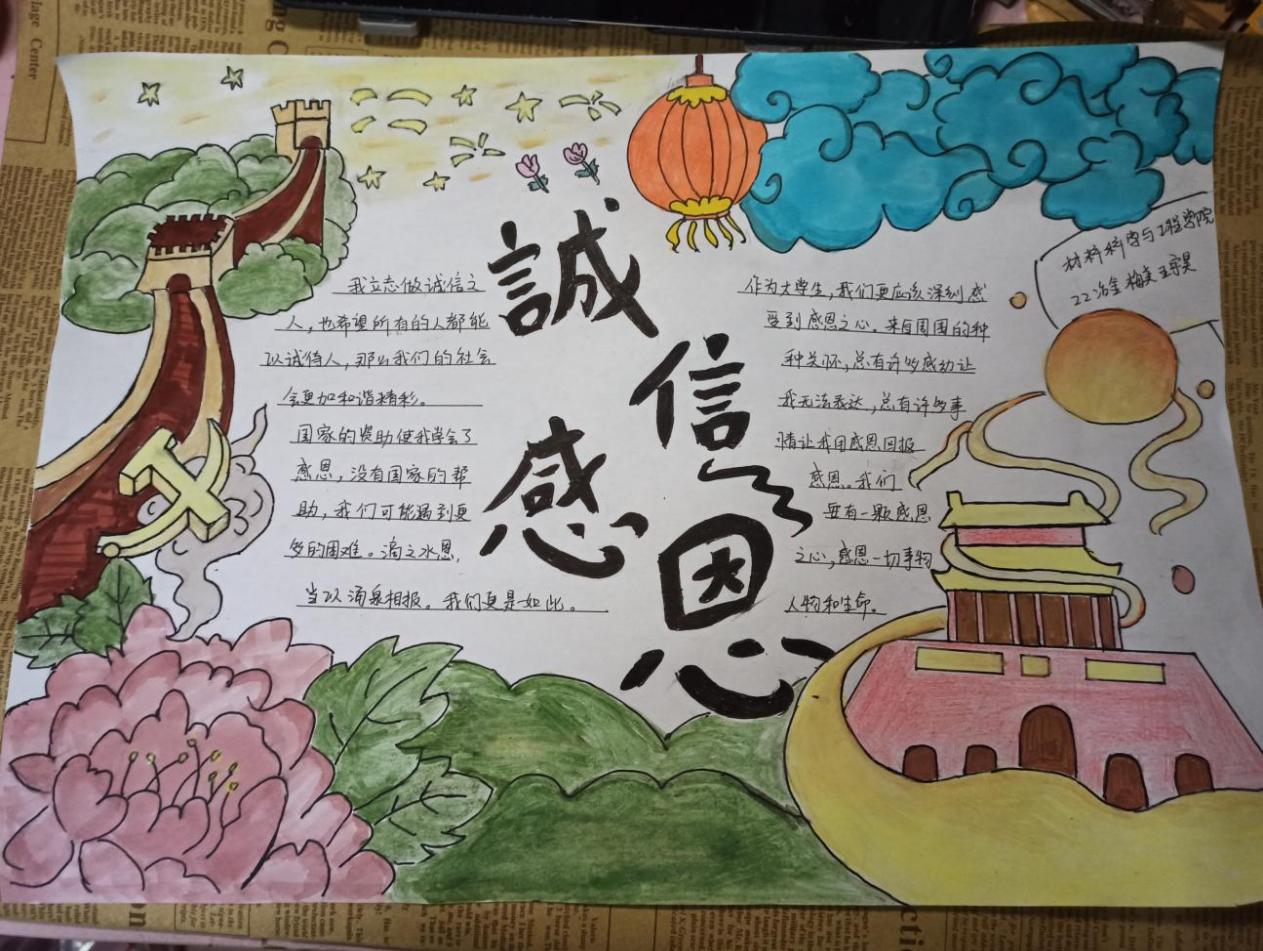 誠
信
感
恩
我立志做诚信之
人，也希望所有的人都能
以诚待人，那么我们的社会
会更加和谐精彩。
国家的资助使我学会了
感恩，没有国家的帮
助，我们可能遇到更
多的困难。滴之水恩，
当以涌泉相报。我们更是如此。
作为大学生，我们更应该深刻感
受到感恩之心。来自周围的种
种关怀，总有许多感动让
我无法表达，总有许多事
情让我用感恩回报
感恩。我们
要有一颗感恩
之心，感恩一切事物
人物和生命。
材料科学与工程学院
22冶金